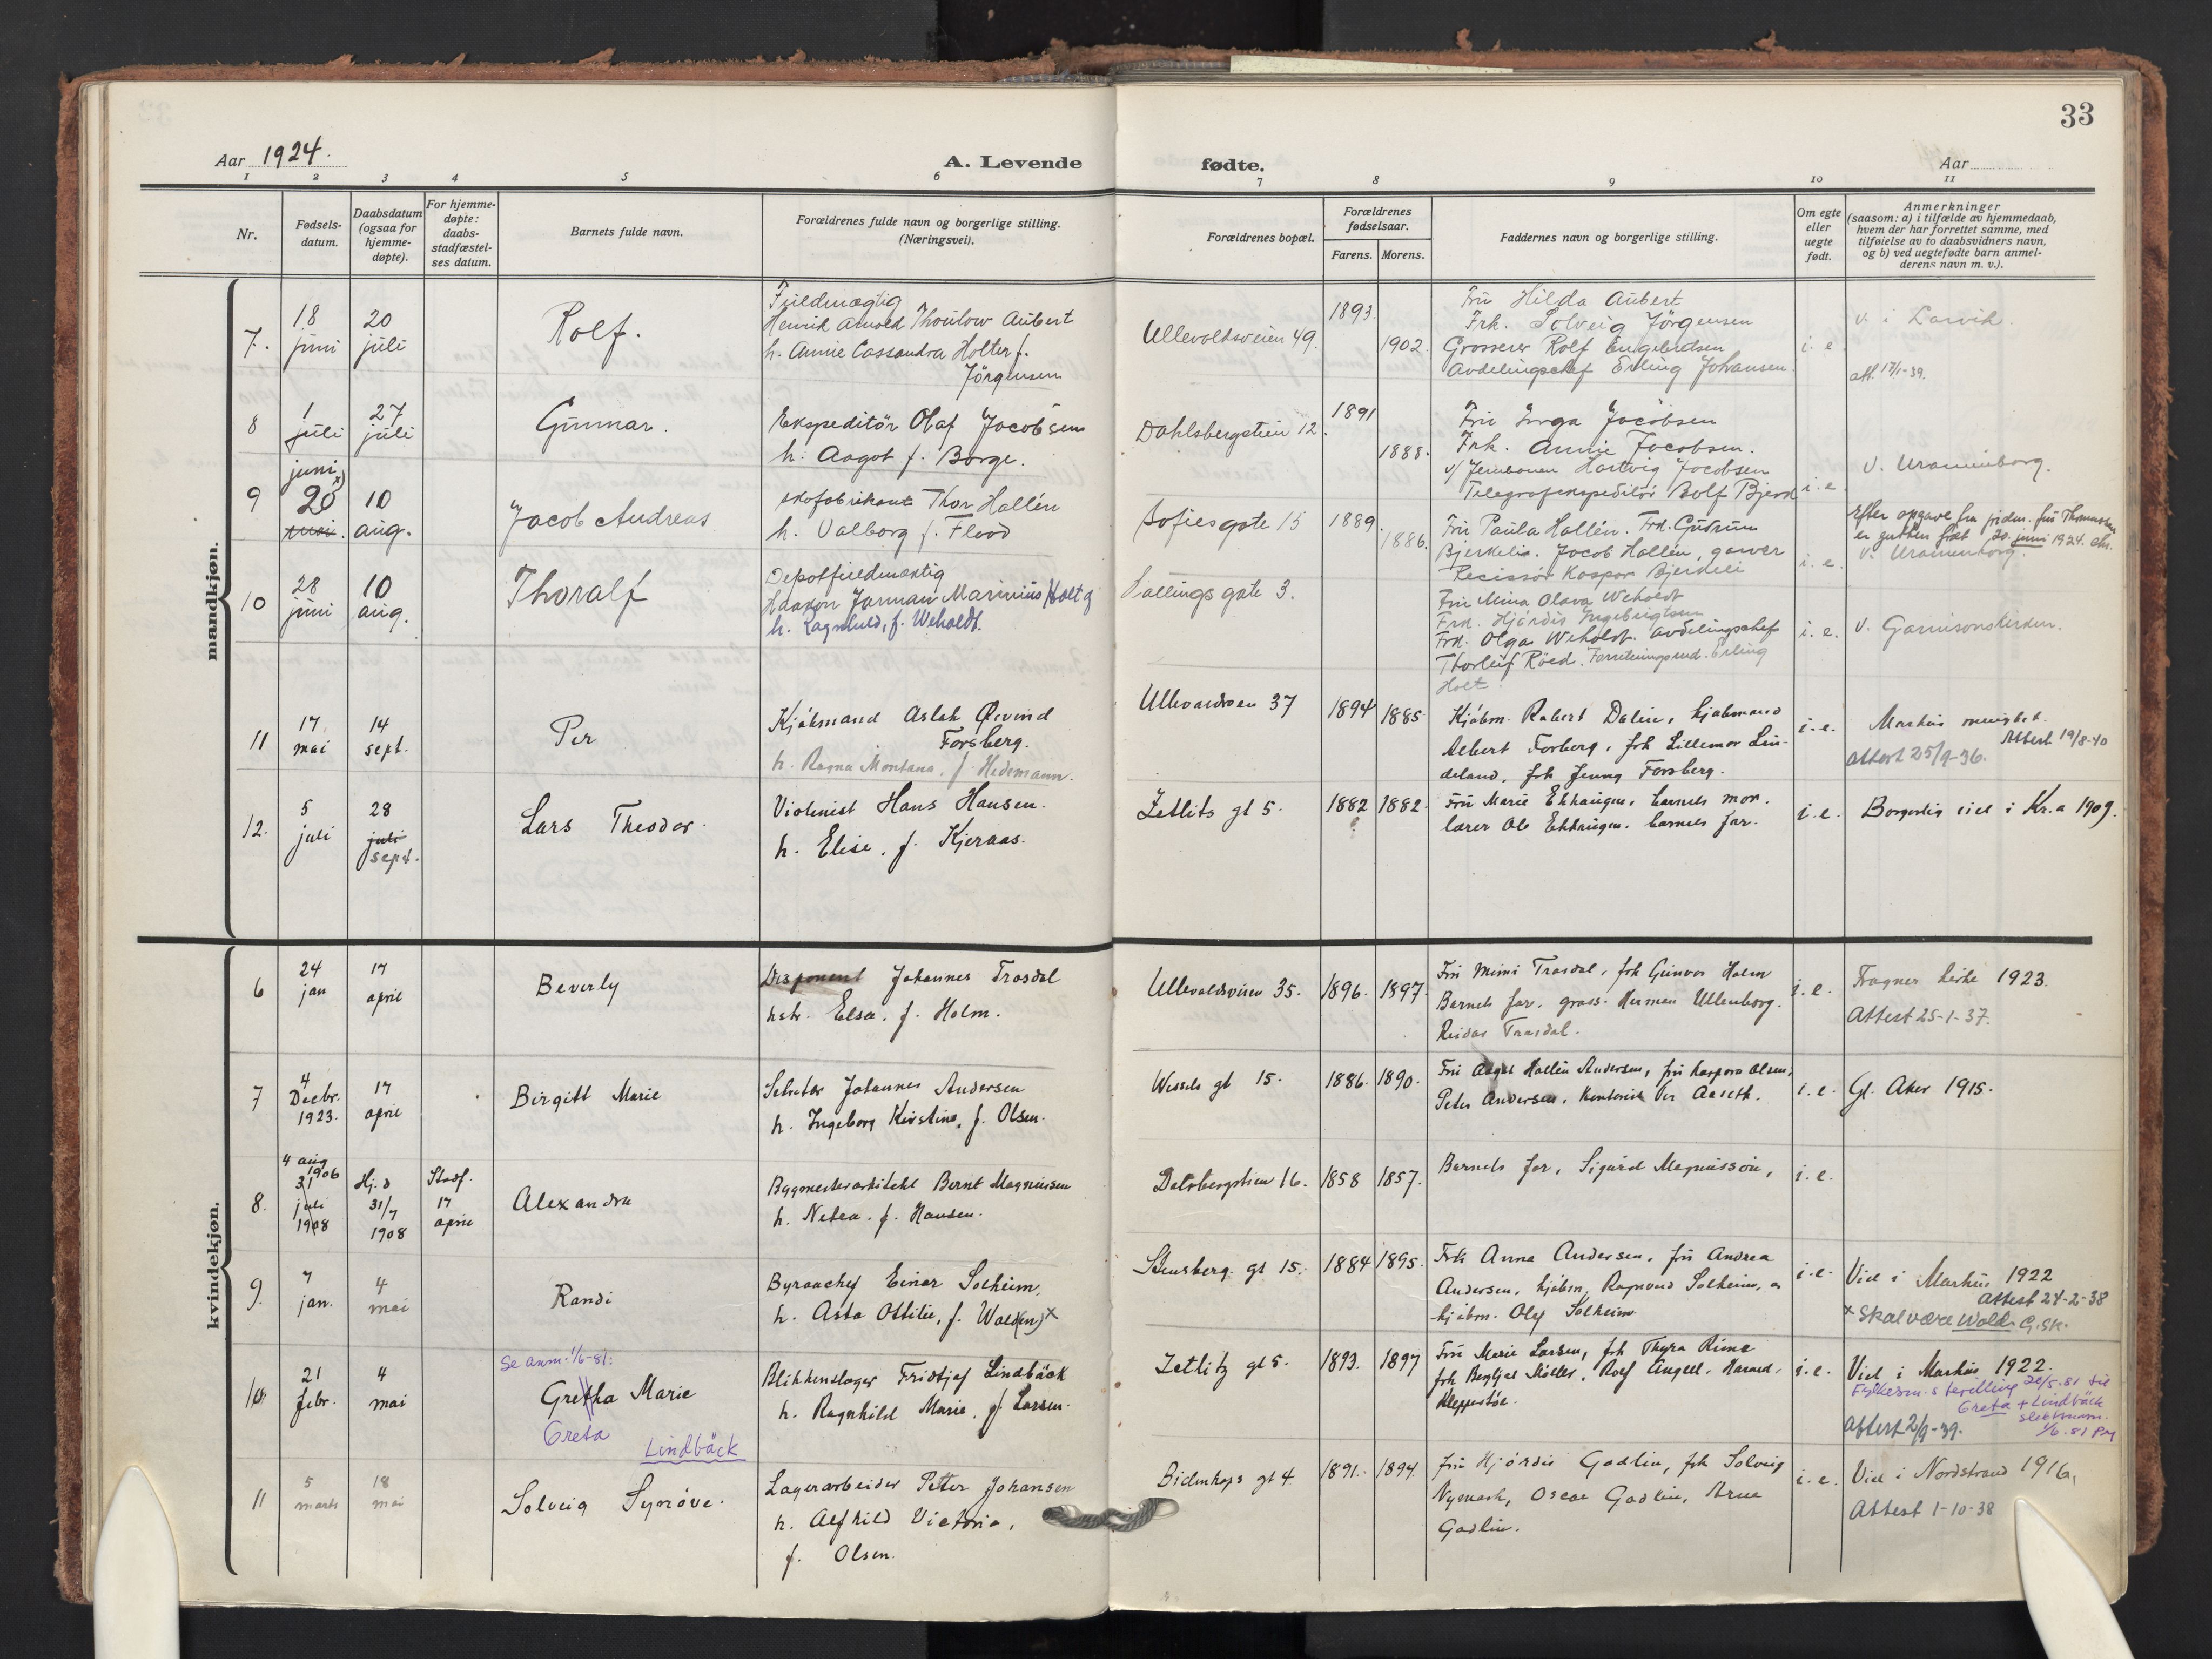 33
Aar 1924.
A. Levende
fødte.
Aar
1 2 3 4 5 6 7 8 9 10 11
Nr.
Fødsels-
datum.
Daabsdatum
(ogsaa for
hjemme-
døpte).
For hjemme-
døpte:
daabs-
stadfæstel-
ses datum.
Barnets fulde navn.
Forældrenes fulde navn og borgerlige stilling.
(Næringsvei).
Forældrenes bopæl.
Forældrenes
fødselsaar.
Farens. Morens.
Faddernes navn og borgerlige stilling.
Om egte
eller
uegte
født.
Anmerkninger
(saasom: a) i tilfælde av hjemmedaab,
hvem der har forrettet samme, med
tilføielse av to daabsvidners navn,
og b) ved uegtefødte barn anmel-
derens navn m. v.).
mandkjøn.
7.
18
juni
20
juli
Rolf.
Henrik Arnold Thoulow Aubert
h. Annie Cassandra Holter f.
Jörgensen
Ullevoldsveien 49.
1893.
1902.
Fru Hilda Aubert
Frk. Solveig Jörgensen
Grosserer Rolf Engebretsen
Avdelingschef Erling Johansen.
i. e.
v. i Larvik.
att. 17/1-39.
8
1
juli
27
juli
Gunnar.
Ekspeditör Olaf Jacobsen
h. Aagot f. Borge.
Dahlsbergstien 12.
1891
1888.
Fru Inga Jacobsen
Frk. Annie Jacobsen.
v/ Jernbanen Hartvig Jacobsen
Telegrafekspeditör Rolf Bjerd
i. e.
v. Uranienborg.
9
juni
20
10
aug.
Jacob Andreas
skofabrikant Thor Hallén
h. Valborg f. Flood
Sofies gate 15
1889.
1886.
Fru Paula Hallén. Frk. Gudrun
Bjerkelie. Jacob Hallén, garver
Kaspar Bjerkeli
i. e.
Efter opgave fra jordm. fru
er gutten født 20. juni 1924.
v. Uranienborg.
10
28
juni
10
aug.
Thoralf
Depotfuldmæktig
Haakon Jarman Marinius Holt og
h. Ragnhild, f. Weholdt.
Sallings gate 3.
Fru Mina Olava Weholdt
Frk. Hjördis Ingebrigtsen
Frk. Olga Weholdt. avdelingschef
Thorleif Röed. Forretningsmd. Erling
Holt.
i. e.
v. Garnisonskirken.
11
17
mai
14
sept.
Per
Kjøbmand Aslak Øivind
Forsberg.
h. Ragna Montana, f. Hedemann.
37
1894 1885
Kjøbm. Robert Dalin, kjøbmand
Albert Forberg, frk Lillemor Lin-
deland, frk Jenny Forsberg.
i. e.
Markus menighet.
Attest 19/8-40
attest 25/9-36.
12.
5
juli
28
juli
sept.
Lars Theodor.
Violinist Hans Hansen.
h. Elise, f. Kjeraas.
Zetlits gt 5.
1882 1882
Fru Marie Ekhaugen, barnets mor.
lærer Ole Ekhaugen. barnets far.
i. e.
Borgerlig viel i Kr.a 1909.
kvindekjøn.
6
24
jan
17
april
Beverly
Disponent Johannes Trosdal
hstr. Elsa. f. Holm.
Ullevoldsveien 35.
1896. 1897.
Fru Mimi Trosdal, frk Gunvor Holm
Barnets far, gross. Herman Ullenborg.
Reidar Trosdal.
i. e.
Frogner kirke 1923.
Attest 25-1-37.
7
4
Decbr.
1923.
17
april
Birgitt Marie
Johannes Andersen
h. Ingeborg Kirstine, f. Olsen.
Wessels gt 15.
1886. 1890.
Fru Aagot Hallén Andersen, fru Kaspara Olsen,
Peter Andersen, Kontorist Per Aaseth.
i. e.
Gl. Aker 1915.
8.
4 aug
1906
31
juli
1908
Hj. d
31/7
1908
Stadf.
17
april
Alexandra
Bygmesterarkitekt Bernt Magnussen
h. Netea. f. Hansen.
Dalsbergstien 16.
1858 1857.
Barnets far, Sigurd Magnussøn,
i. e.
9.
7
jan.
4
mai
Randi
Byraachef Einar Solheim,
h. Asta Ottilie, f. Wold(en) x
Stensberg. gt 15.
1884 1895.
Frk Anna Andersen, fru Andrea
Andersen, kjøbm. Ragnvald Solheim, og
kjøbm. Oley Solheim
i. e.
Viel i Markus 1922
attest 24-2-38
x Skal være Wold. G.Sk.
10
21
febr.
4
mai
Se anm. 1/6-81:
Gretha Marie
Greta
Lindbäck
Blikkenslager Fridtjof Lindbäck
h. Ragnhild Marie, f. Larsen.
Zetlitz gt 5.
1893. 1897
Fru Marie Larsen, frk Thyra Rime
frk Bergljot Møller, Rolf Angell. Harald
Kleppestøe.
i. e.
Viel i Markus 1922.
Fylkesm.s bevilling 20/5.81 til
Greta + Lindbäck
slektsnavn.
1/6.81 PM
Attest 2/9-39.
11
5
marts
18
mai
Solveig Synöve.
Lagerarbeider Petter Johansen
h. Alfhild Victoria,
f. Olsen.
Bidenkaps gt 4
1891. 1894.
fru Hjördis Godlin, frk Solveig
Nymark, Oscar Godlin, Arne
Godlin.
i. e.
Viel i Nordstrand 1916,
Attest 1-10-38